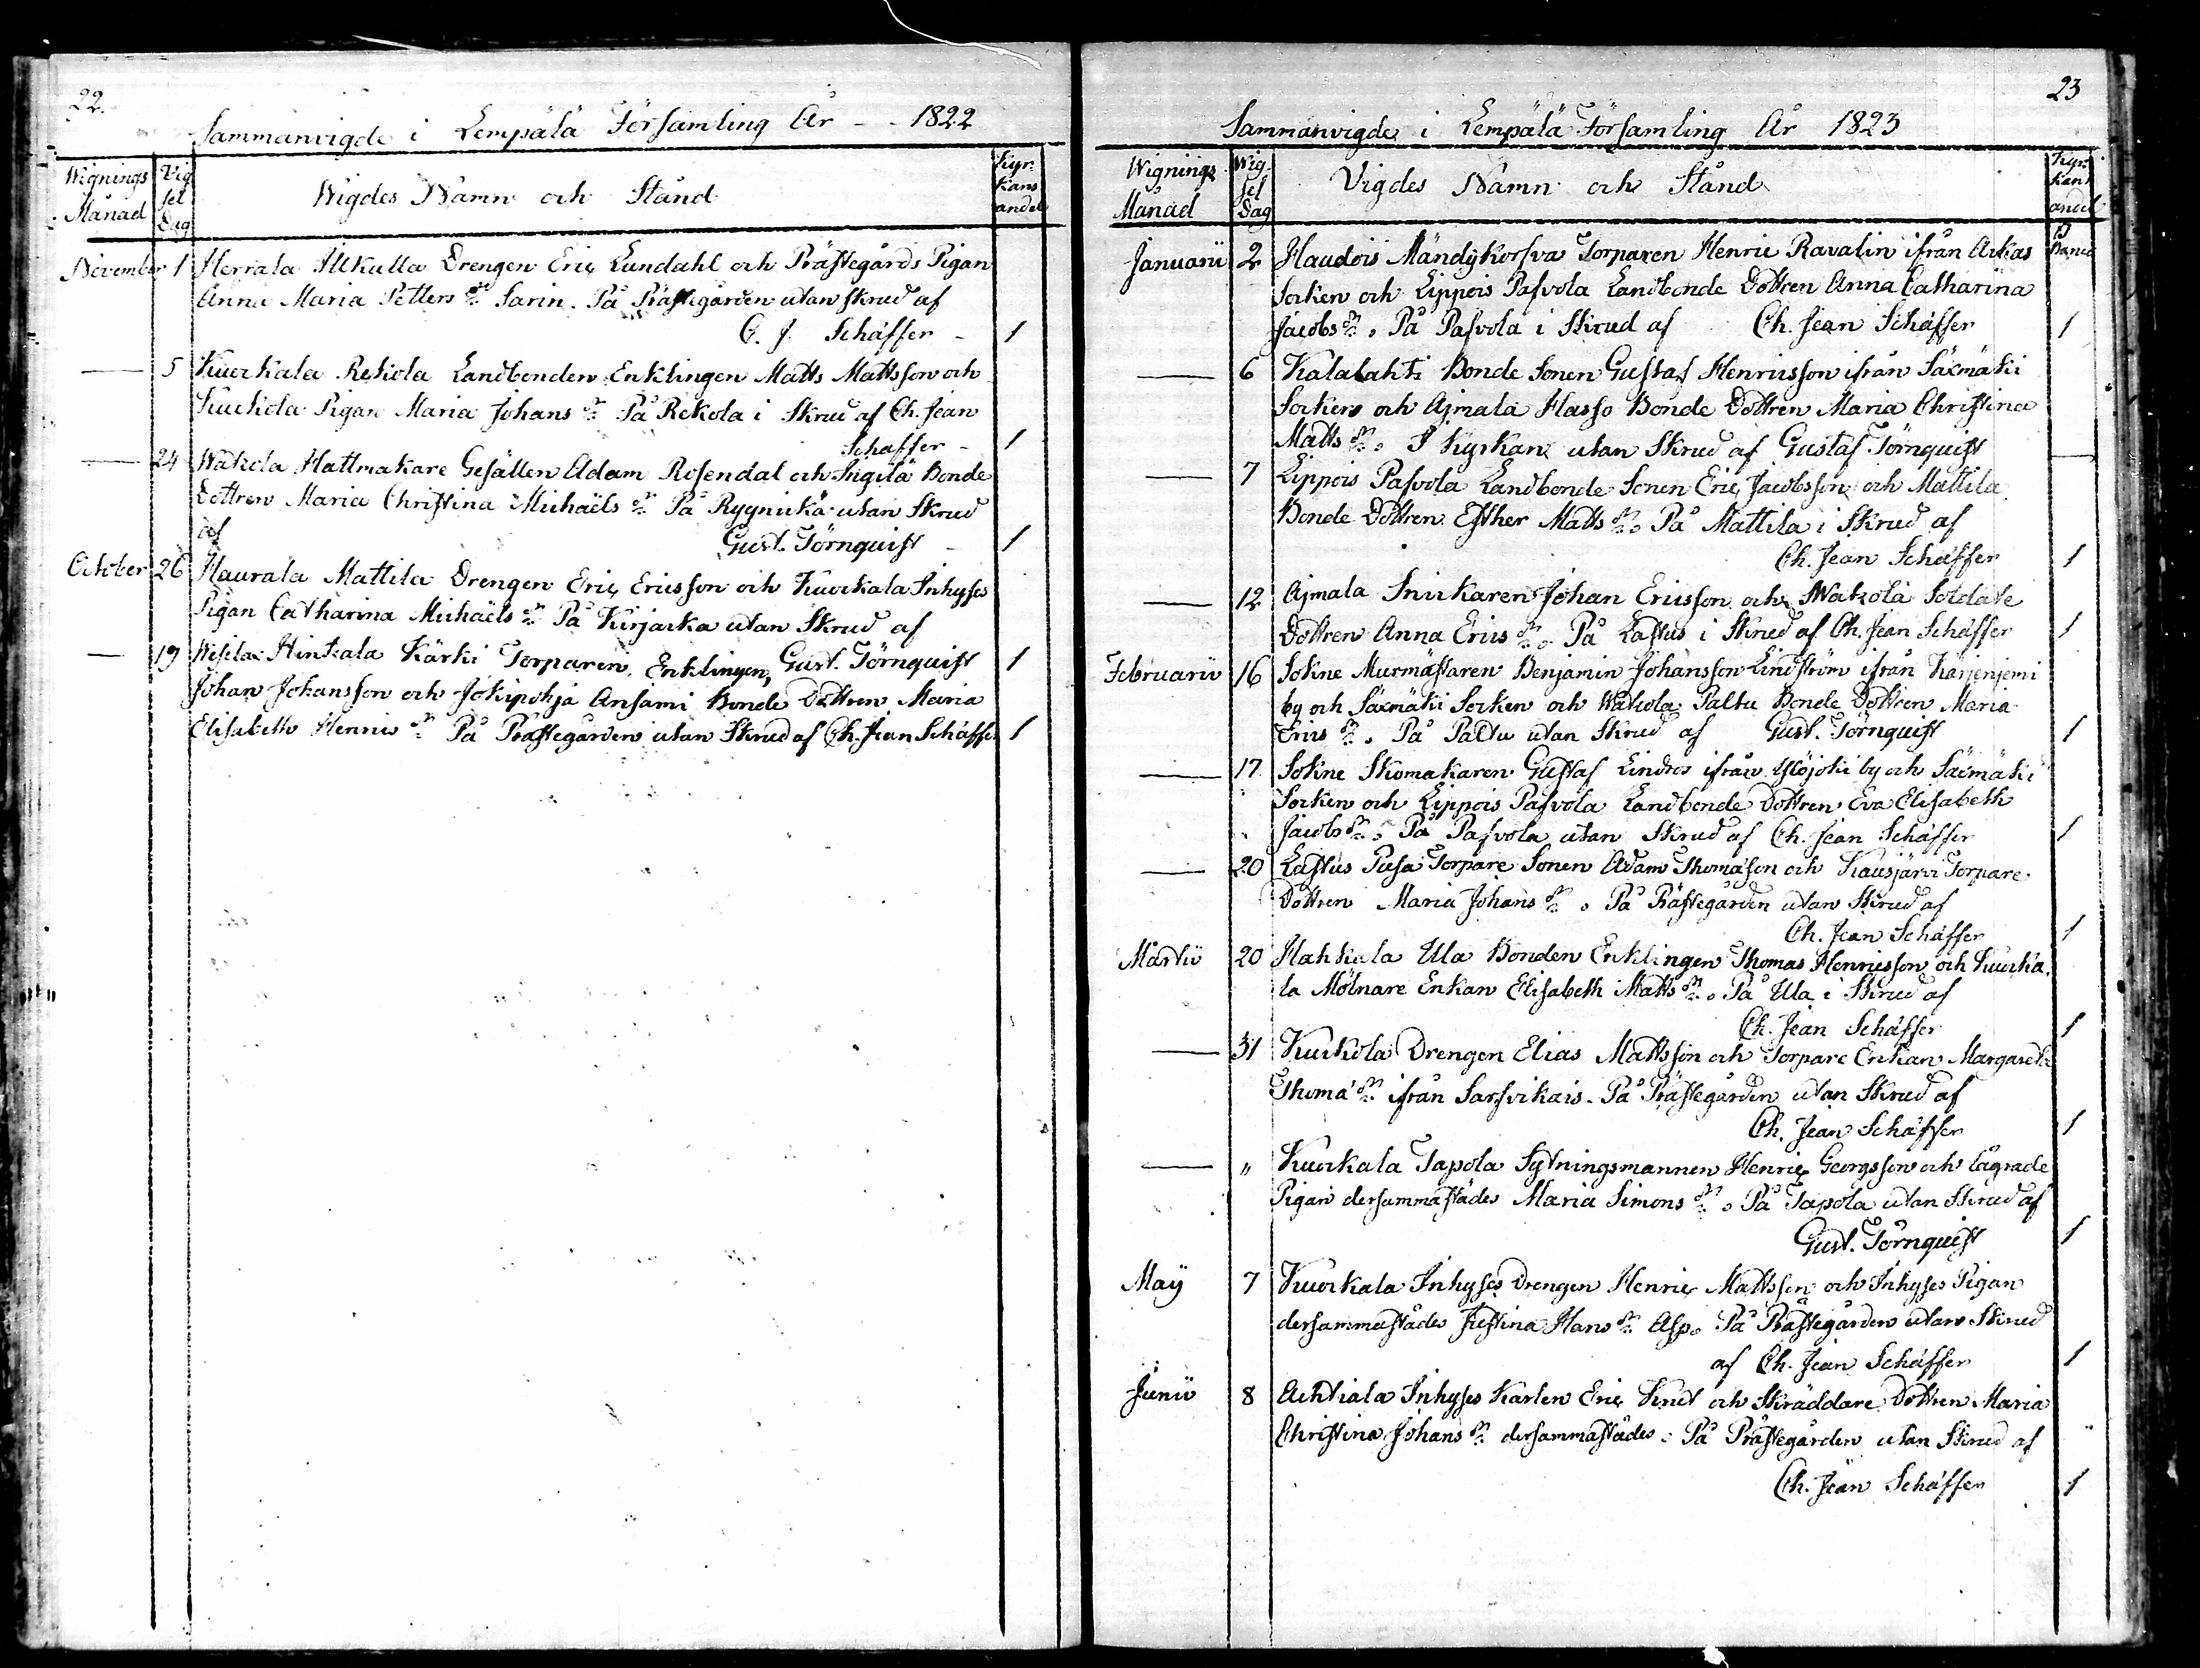 22.
Sammanvigde i Lempälä Församling År - - 1822
Wignings Månad
Vig sel Dag
Wigdes Namn och Stånd
Kyr. kans andel
November 1 Herrala Illkulla Drengen Eric Lundahl och Prästegårds Pigan
Anna Maria Petters dr Sarin. På Prästegården utan skrud af
C. J. Schäffer - 1
5 Kuorkala Rekola Landbonden Enklingen Matts Mattsson och
Kuckola Pigan Maria Johans dr På Rekola i Skrud af Ch. Jean
Schäffer - 1
24 Wakola Hattmakare Gesällen Adam Rosendal och Ingilä Bonde
Dottren Maria Christina Michaëls dr På Ryynickä utan Skrud
af Gust. Törnquist - 1
October 26 Haurala Mattila Drengen Eric Ericsson och Kuorkala Inhyses
Pigan Catharina Michaëls dr På Kirjaska utan Skrud af
Gust. Törnquist 1
19 Wesilax Hinkala Kärki Torparen Enklingen,
Johan Johansson och Jokipohja Ansami Bonde Dottren Maria
Elisabeth Henrics dr På Prästegården utan Skrud af Ch. Jean Schäffer 1
23
Sammanvigde i Lempälä Församling År 1823
Wignings Månad
Wig. sel Dag
Vigdes Namn och Stånd
Kyr. kans andel
Januarii 2 Haudois Mändykorsva Torparen Henric Ravalin ifrån Arkas
Socken och Lippois Pasvola Landbonde Dottren Anna Catharina
Jacobs dr. På Pasvola i Skrud af Ch. Jean Schäffer 1
6 Kalalahti Bonde Sonen Gustaf Henricsson ifrån Säxmäki
Socken och Ajmala Hasso Bonde Dottren Maria Christina
Matts dr. I Kyrkan utan Skrud af Gustaf Törnquist —
7 Lippois Pasvola Landbonde Sonen Eric Jacobsson och Mattila
Bonde Dottren Esther Matts dr. På Mattila i Skrud af
Ch. Jean Schäffer 1
12 Ajmala Snickaren Johan Ericsson och Wakola Soldate
Dottren Anna Erics dr. På Lastus i Skrud af Ch. Jean Schäffer 1
Februarii 16 Sokne Murmästaren Benjamin Johansson Lindström ifrån Kärjenjemi
by och Säxmäki Socken och Wakola Paltu Bonde Dottren Maria
Erics dr. På Paltu utan Skrud af Gust. Törnquist 1
17 Sokne Skomakaren Gustaf Lindros ifrån Ylöjoki by och Säxmäki
Socken och Lippois Pasvola Landbonde Dottren Eva Elisabeth
Jacobs dr. På Pasvola utan Skrud af Ch. Jean Schäffer 1
20 Lastus Pusa Torpare Sonen Adam Thomasson och Kausjärvi Torpare
Dottren Maria Johans dr. På Prästegården utan Skrud af
Ch. Jean Schäffer 1
Martii 20 Hahkala Ula Bonden Enklingen Thomas Henricsson och Kuorka-
la Mölnare Enkan Elisabeth Matts dr. På Ula i Skrud af
Ch. Jean Schäffer 1
31 Kuckola Drengen Elias Mattsson och Torpare Enkan Margareta
Thomæ dr ifrån Sarsvikais. På Prästegården utan Skrud af
Ch. Jean Schäffer 1
" Kuorkala Tapola Sytningsmannen Henric Georgsson och lägrade
Pigan dersammastädes Maria Simons dr. På Tapola utan Skrud af
Gust. Törnquist 1
Maÿ 7 Kuorkala Inhyses Drengen Henric Mattsson och Inhyses Pigan
dersammastädes Justina Hans dr Asp. På Prästegården utan Skrud
af Ch. Jean Schäffer 1
Junii 8 Achtiala Inhyses Karlen Eric Knut och Skräddare Dottren Maria
Christina Johans dr dersammastädes. På Prästegården utan Skrud af
Ch. Jean Schäffer 1